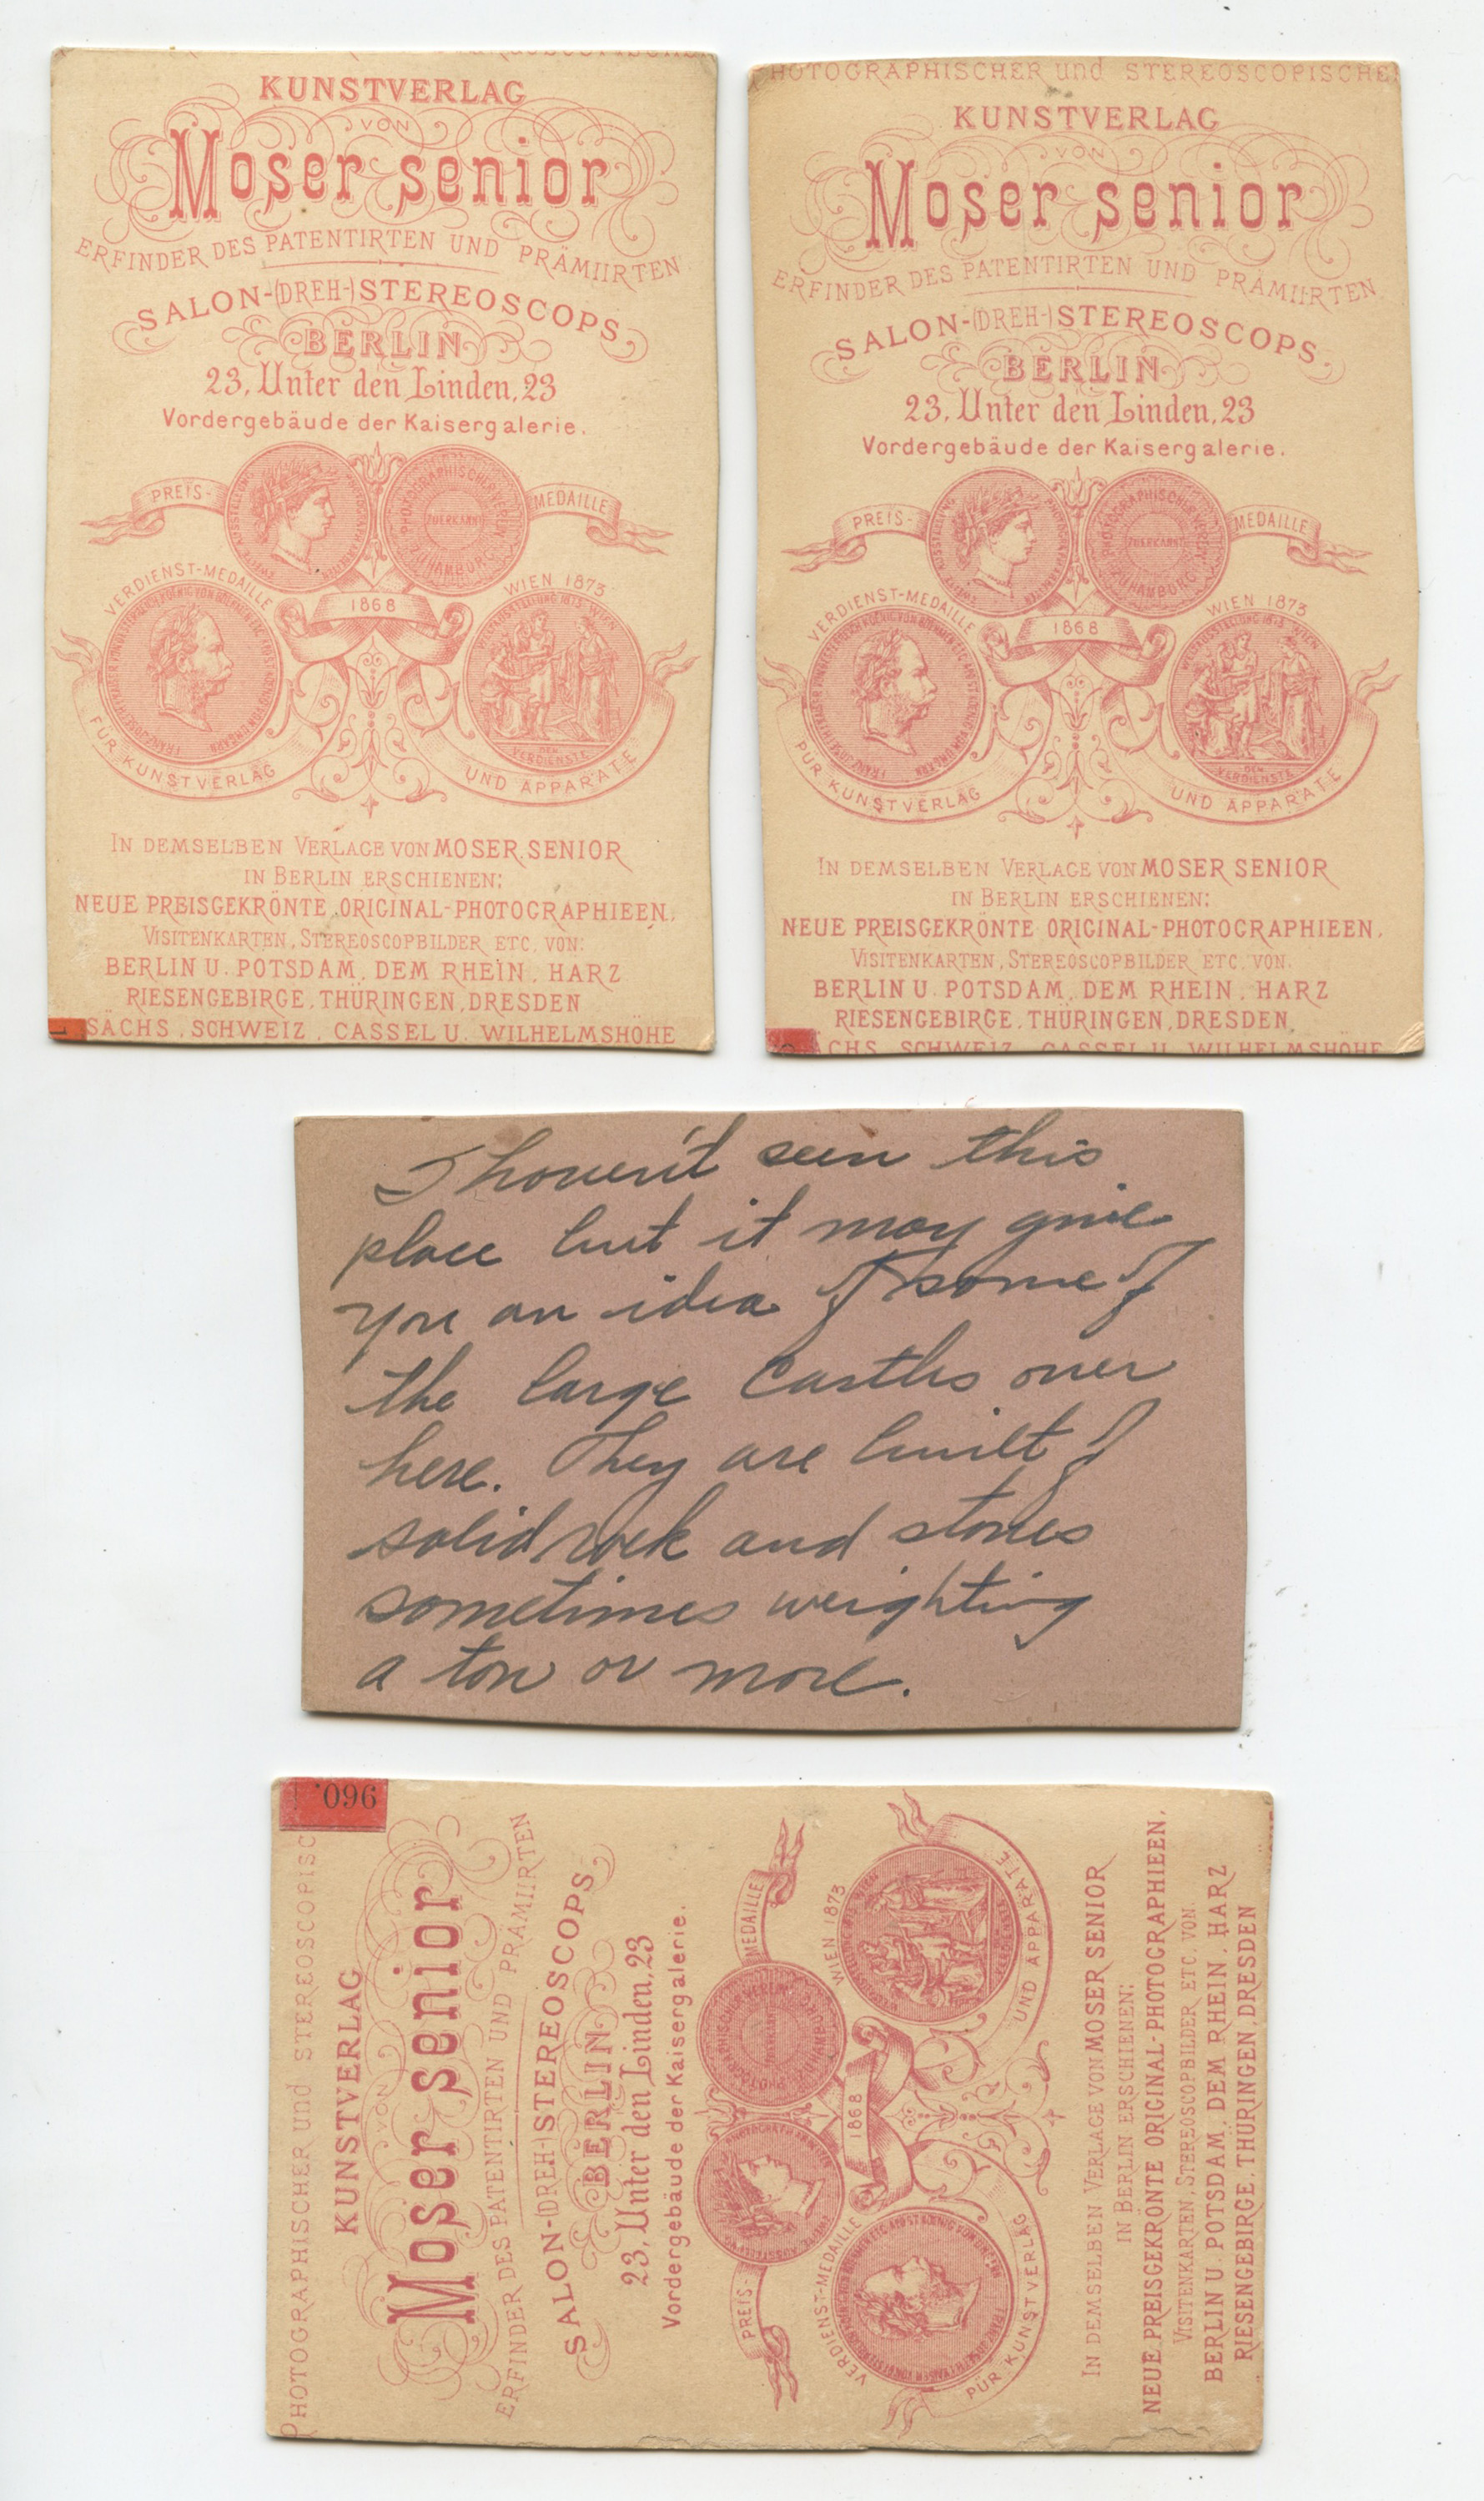 KUNSTVERLAG
VON
Moser senior
ERFINDER DES PATENTIRTEN UND PRÄMIIRTEN
SALON-(DREH-)STEREOSCOPS
BERLIN
23, Unter den Linden, 23
Vordergebäude der Kaisergalerie.
PREIS- MEDAILLE
PHOTOGRAPHISCHER VEREIN
ZUERKANNT
HAMBURG
1868
VERDIENST-MEDAILLE WIEN 1873
WELTAUSSTELLUNG 1873 WIEN
DEM VERDIENSTE
FÜR KUNSTVERLAG UND APPARATE
IN DEMSELBEN VERLAGE VON MOSER SENIOR
IN BERLIN ERSCHIENEN:
NEUE PREISGEKRÖNTE ORIGINAL-PHOTOGRAPHIEEN,
VISITENKARTEN, STEREOSCOPBILDER ETC. VON:
BERLIN U. POTSDAM, DEM RHEIN, HARZ
RIESENGEBIRGE, THÜRINGEN, DRESDEN
SÄCHS. SCHWEIZ, CASSEL U. WILHELMSHÖHE
HOTOGRAPHISCHER und STEREOSCOPISCHE
KUNSTVERLAG
VON
Moser senior
ERFINDER DES PATENTIRTEN UND PRÄMIIRTEN
SALON-(DREH-)STEREOSCOPS
BERLIN
23, Unter den Linden, 23
Vordergebäude der Kaisergalerie.
PREIS- MEDAILLE
PHOTOGRAPHISCHER VEREIN
ZUERKANNT
HAMBURG
1868
VERDIENST-MEDAILLE WIEN 1873
DEM VERDIENSTE
FÜR KUNSTVERLAG UND APPARATE
IN DEMSELBEN VERLAGE VON MOSER SENIOR
IN BERLIN ERSCHIENEN:
NEUE PREISGEKRÖNTE ORIGINAL-PHOTOGRAPHIEEN,
VISITENKARTEN, STEREOSCOPBILDER ETC. VON:
BERLIN U. POTSDAM, DEM RHEIN, HARZ
RIESENGEBIRGE, THÜRINGEN, DRESDEN,
ÄCHS. SCHWEIZ, CASSEL U. WILHELMSHÖHE
I haven't seen this
place but it may give
you an idea of some of
the large Castles over
here. They are built of
solid rock and stones
sometimes weighting
a ton or more.
096.
PHOTOGRAPHISCHER und STEREOSCOPISC
KUNSTVERLAG
VON
Moser senior
ERFINDER DES PATENTIRTEN UND PRÄMIIRTEN
SALON-(DREH-)STEREOSCOPS
BERLIN
23, Unter den Linden, 23
Vordergebäude der Kaisergalerie.
PREIS- MEDAILLE
1868
VERDIENST-MEDAILLE WIEN 1873
FÜR KUNSTVERLAG UND APPARATE
IN DEMSELBEN VERLAGE VON MOSER SENIOR
IN BERLIN ERSCHIENEN:
NEUE PREISGEKRÖNTE ORIGINAL-PHOTOGRAPHIEEN,
VISITENKARTEN, STEREOSCOPBILDER ETC. VON:
BERLIN U. POTSDAM, DEM RHEIN, HARZ
RIESENGEBIRGE, THÜRINGEN, DRESDEN